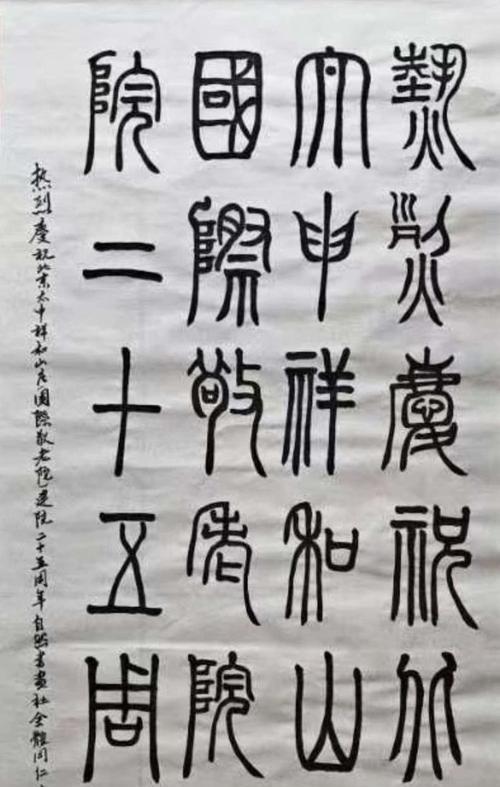 熱烈慶祝北
太申祥和山
國際敬老院
院二十五周
热烈慶祝北京太申祥和山庄國際敬老院建院二十五周年自然書畫社全體同仁